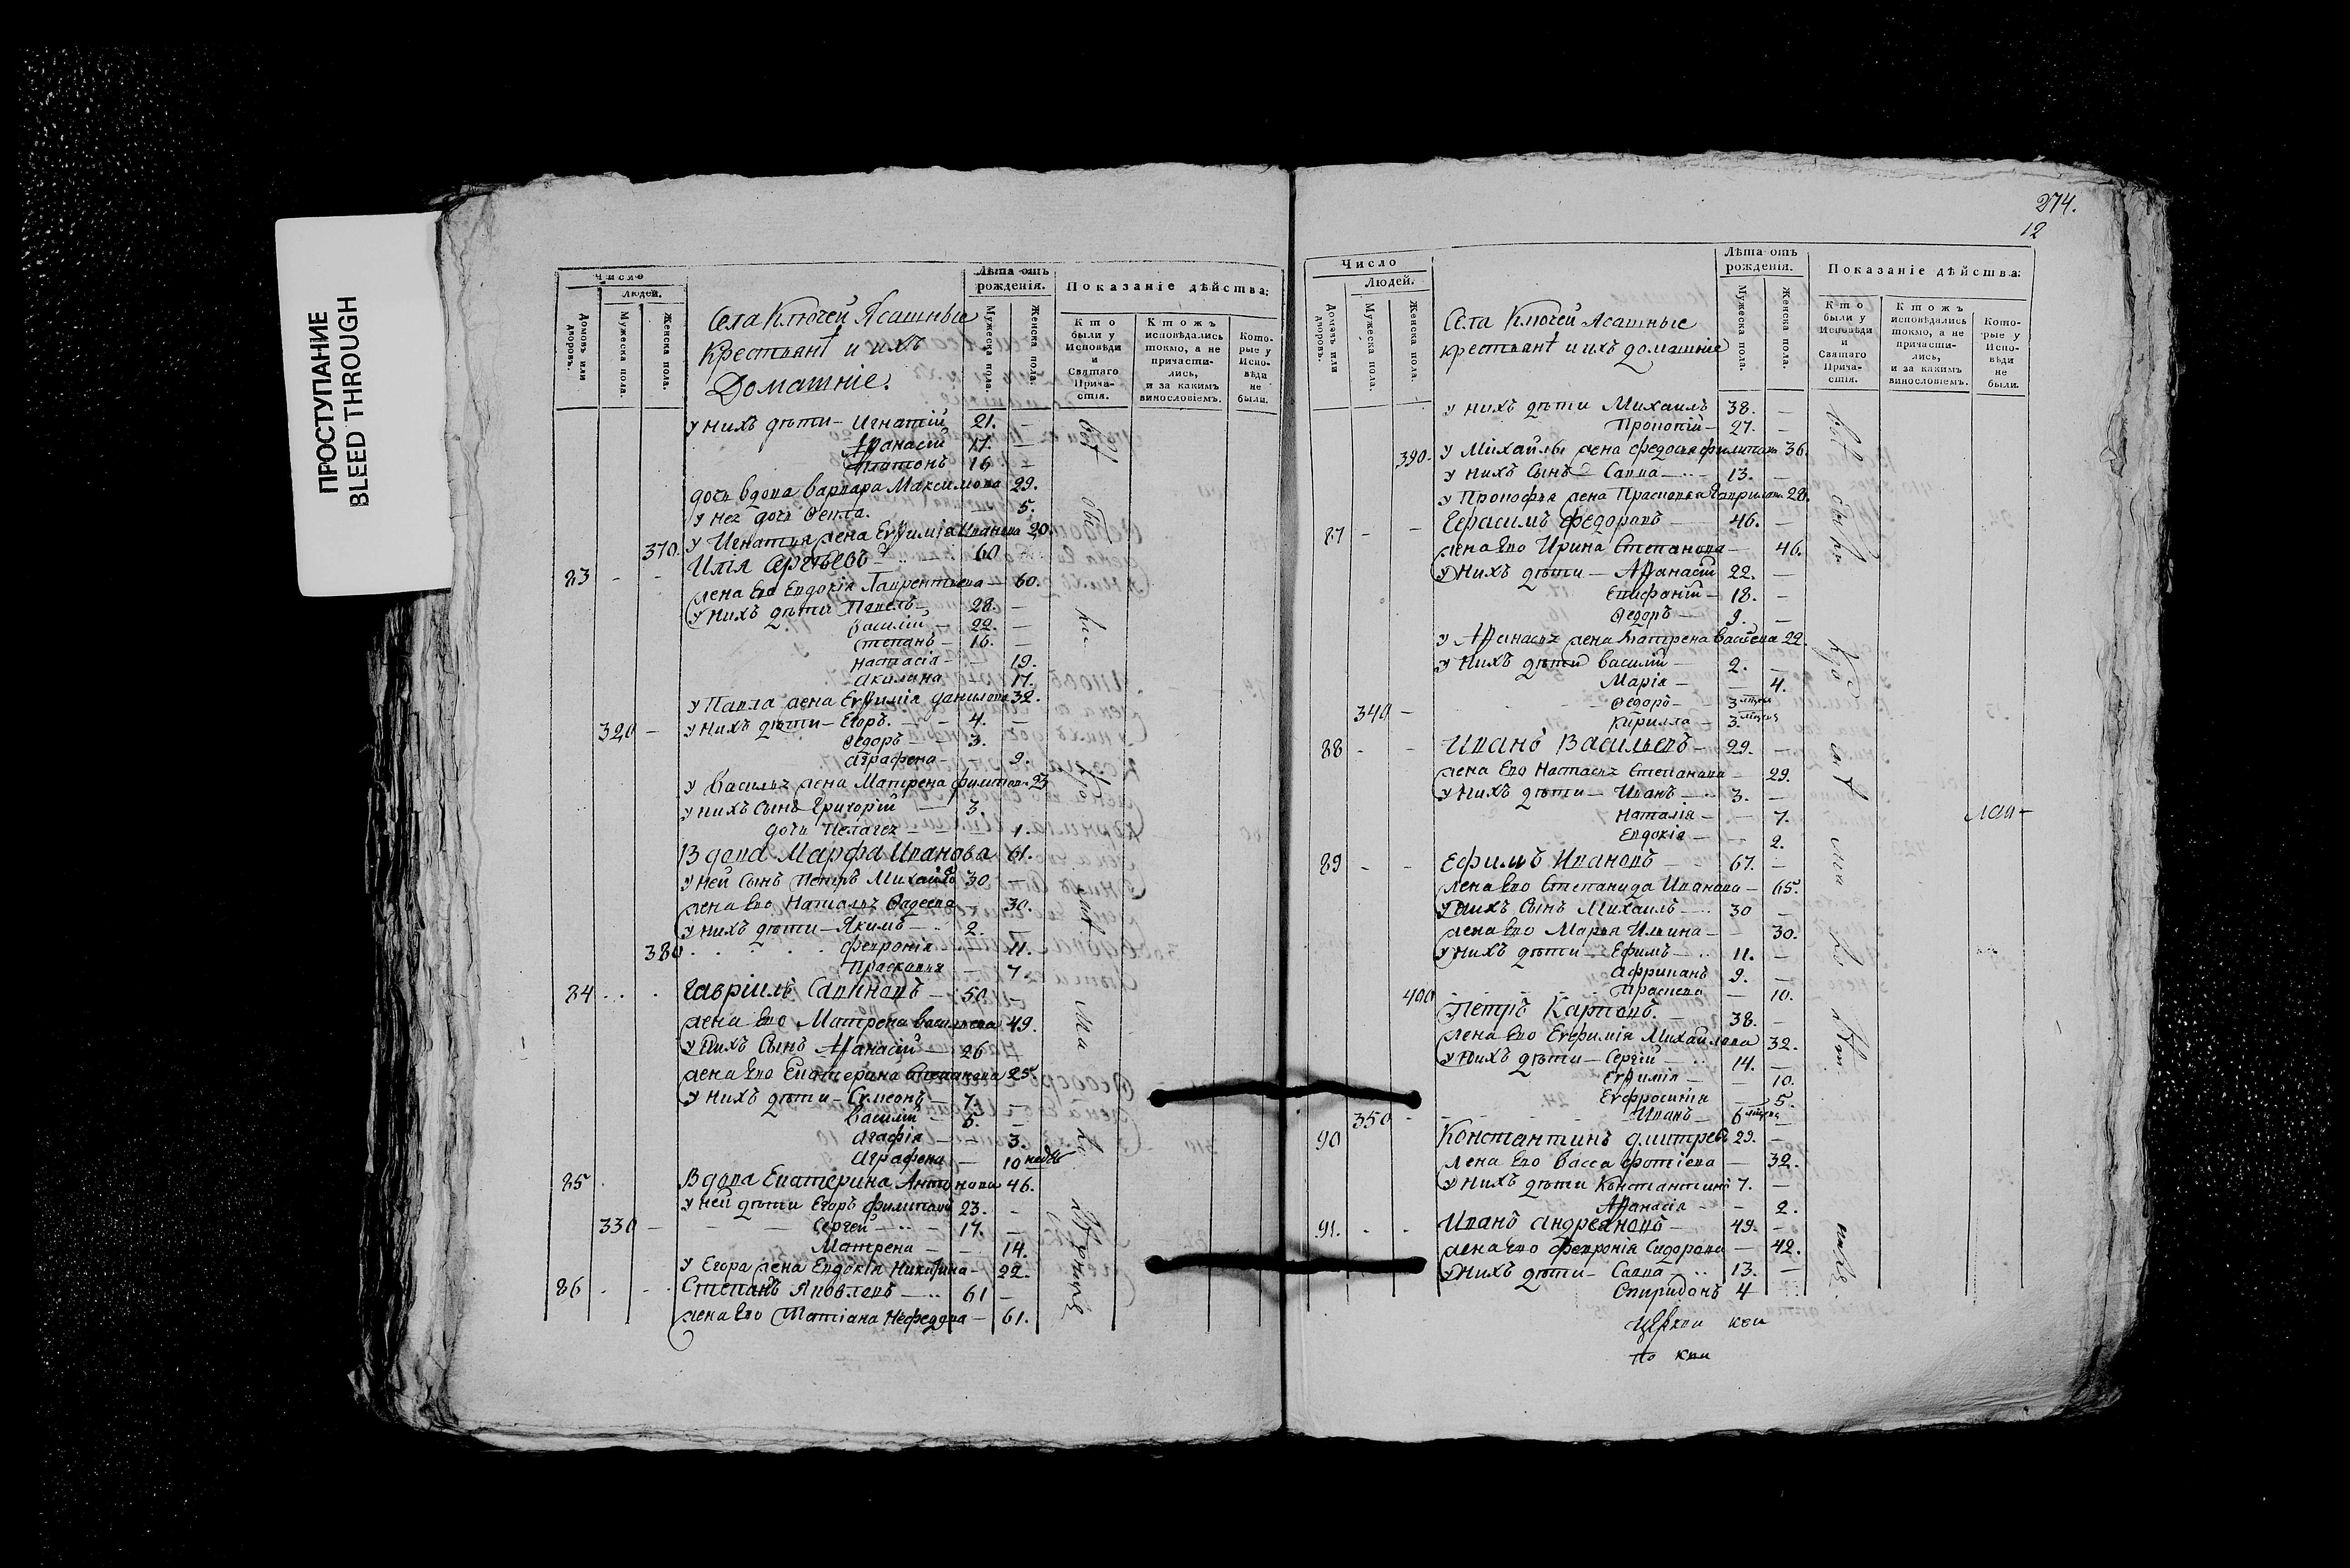 ПРОСТУПАНИЕ
BLEED THROUGH
Число
Людей.
Домовъ или дворовъ.
Мужеска пола.
Женска пола.
Села Ключей Ясашные
Крестьянѣ и ихъ
Домашніе.
Лѣта отъ рожденія.
Мужеска пола.
Женска пола.
Показаніе дѣйства:
Кто были у Исповѣди и Святаго Причастія.
Ктожъ исповѣдались токмо, а не причастились, и за какимъ винословіемъ.
Которые у Исповѣди не были.
у нихъ дѣти – Игнатій 21. –
Афанасій 17. –
Платонъ 16 –
дочь вдова Варвара Максимова 29.
у нея дочь Фекла. – 5.
370. у Игнатья жена Евфимія Иванова 20.
83 - - Илія 60
жена Его Евдокія Лаврентьева – 60.
у нихъ дѣти Павелъ – 28. –
Василій – 22. –
Степанъ – 16. –
Настасія – – 19.
Акилина – 17.
у Павла жена Евфимія Данилова 32.
320 – у нихъ дѣти – Егоръ. – 4. –
Федоръ – 3.
Аграфена – – 9.
у Василья жена Матрена Филипова 23
у нихъ сынъ Григорій – 3.
дочь Пелагея – – 1.
Вдова Марфа Иванова 61.
у ней сынъ Петръ Михайловъ 30 –
жена Его Наталья Фадеева – 30.
у нихъ дѣти – Якимъ – 2. –
380 Февронія – 11.
Прасковья – 7.
84 . . . Гавріилъ Савиновъ – 50 –
жена Его Матрена Васильева 49.
у нихъ Сынъ Афанасій – 26
жена Его Екатерина Степанова 25
у нихъ дѣти – Сѵмеонъ – 7. –
Василій – 5. –
Агафія – – 3.
Аграфена – 10 недѣль
85 . Вдова Екатерина Антонова 46.
у ней дѣти Егоръ Филиповъ 23. –
330 – Сергей – 17. –
Матрена – – 14.
у Егора жена Евдокія Никитина – 22.
86 . . . Степанъ Яковлевъ – 61 –
жена Его Татіана Нефедова – 61.
274.
12
Число
Людей.
Домовъ или дворовъ.
Мужеска пола.
Женска пола.
Села Ключей Ясашные
крестьянѣ и ихъ домашніе
Лѣта отъ рожденія.
Мужеска пола.
Женска пола.
Показаніе дѣйства:
Кто были у Исповѣди и Святаго Причастія.
Ктожъ исповѣдались токмо, а не причастились, и за какимъ винословіемъ.
Которые у Исповѣди не были.
у нихъ дѣти Михаилъ 38. –
Прокопій – 27. –
390 – у Михайлы жена Федосья Филипова 36.
у нихъ Сынъ – Савва – 13. –
у Прокофья жена Прасковья Гаврилова 28.
87 – – Герасимъ Федоровъ – 46. –
жена Его Ирина Степанова – 46.
у нихъ дѣти – Афанасій 22. –
Епифаній – 18. –
Федоръ – 9. –
у Афанасья жена Матрена Васильева 22.
у нихъ дѣти Василій – 2. –
Марія – – 4.
340 – Федоръ – 3
Кирилла – 3.
88 - - Иванъ Васильевъ – 29. –
жена Его Настасья Степанова – 29.
у нихъ дѣти – Иванъ – 3. –
Наталія – – 7.
Евдокія – – 2.
89 - - Ефимъ Ивановъ – 67. –
жена Его Степанида Иванова – 65.
у нихъ Сынъ Михаилъ – 30 –
жена Его Марья Ильина – 30.
у нихъ дѣти – Ефимъ – 11. –
Африканъ 9. –
400 Праскева – 10.
Петръ Карповъ. – 38. –
жена Его Евфимія Михайлова 32.
у нихъ дѣти – Сергій – 14. –
Евфимія – – 10.
Евфросинія – 5.
350 – Иванъ – 6
90 Константинъ Дмитревъ 29. –
жена Его Васса Фотіева – 32.
у нихъ дѣти Константинъ 7. –
Афанасія – – 2.
91. - - Иванъ Андреяновъ – 49. –
жена Его Февронія Сидорова – 42.
у нихъ дѣти – Савва – 13. –
Спиридонъ 4